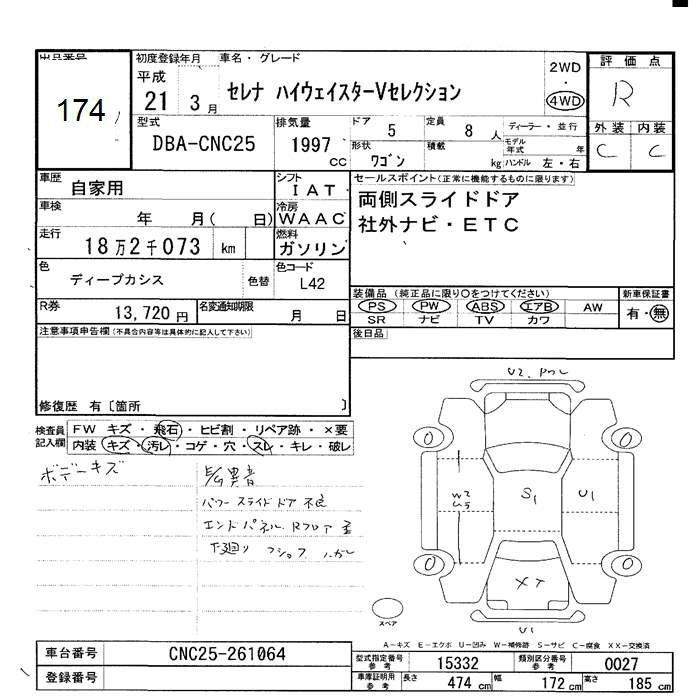 出品番号
174
初度登録年月
平成
21 3月
車名・グレード
セレナ ハイウェイスターVセレクション
2WD
・
4WD
評価点
R
型式
DBA-CNC25
排気量
1997 CC
ドア 5
定員 8人
ディーラー・並行
形状 ワゴン
積載 kg
モデル年式 年
ハンドル 左・右
外装 内装
C C
車歴
自家用
シフト
IAT
車検
年 月( 日)
冷房
WAAC
走行
18万2千073 km
燃料
ガソリン
色
ディープカシス
色替
色コード
L42
R券
13,720円
名変通知期限
月 日
セールスポイント(正常に機能するものに限ります)
両側スライドドア
社外ナビ・ETC
装備品(純正品に限り○をつけてください)
PS PW ABS エアB AW
SR ナビ TV カワ
新車保証書
有・無
後日品
注意事項申告欄(不具合内容等は具体的に記入して下さい)
修復歴 有〔箇所 〕
検査員記入欄
FW キズ・飛石・ヒビ割・リペア跡・×要
内装 キズ・汚レ・コゲ・穴・スレ・キレ・破レ
ボデーキズ
異音
パワースライドドア不良
エンドパネル Rフロア
下廻り
U2
W2
S1
U1
XT
U1
スペア
A-キズ E-エクボ U-凹み W-補修跡 S-サビ C-腐食 XX-交換済
車台番号 CNC25-261064
登録番号
型式指定番号参考 15332
類別区分番号参考 0027
車庫証明用参考 長さ 474cm 幅 172cm 高さ 185cm